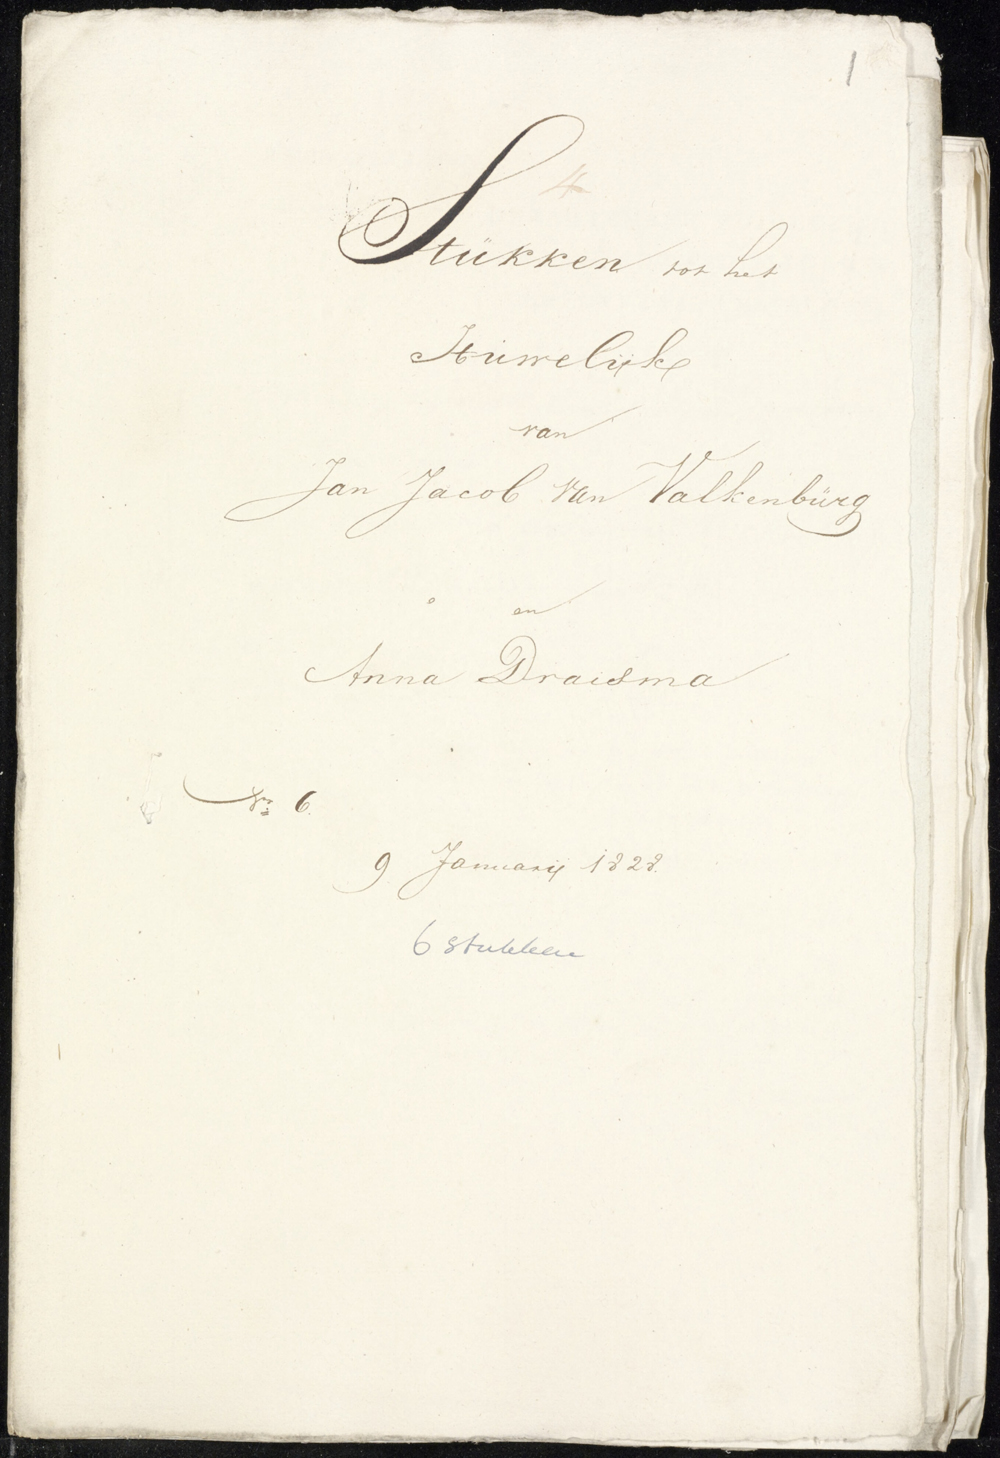 1
4
Stükken tot het
Hüwelijk
van
Jan Jacob van Valkenbürg
en
Anna Draisma
No. 6.
9 Januarij 1828.
6 stukken